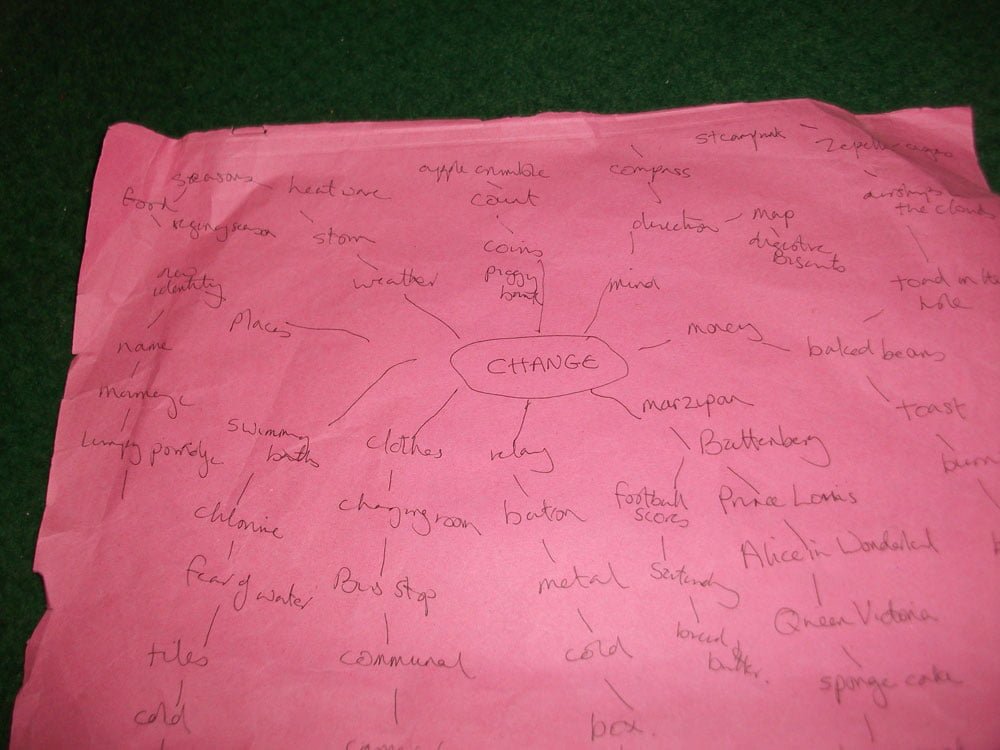 steampunk
Zepellin
apple crumble
compass
seasons
heat wave
airships
the clouds
food
count
direction
map
season
storm
digestive
Biscuits
coins
new
identity
weather
piggy
bank
mind
toad in the
hole
Places
money
name
CHANGE
baked beans
marriage
marzipan
toast
lumpy porridge
swimming
baths
clothes
relay
Battenberg
burn
chlorine
changing room
baton
football
scores
Prince Louis
fear of water
Bus stop
metal
Saturday
Alice in Wonderland
tiles
communal
cold
bread
butter.
Queen Victoria
cold
box.
sponge cake